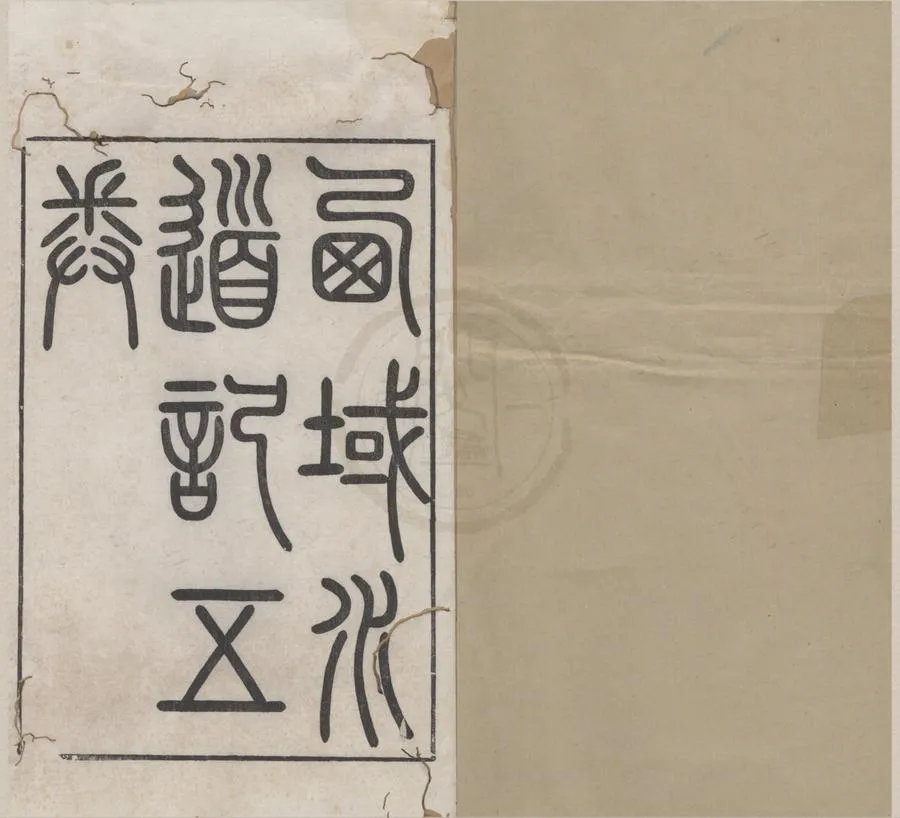 西域水
道記五
卷